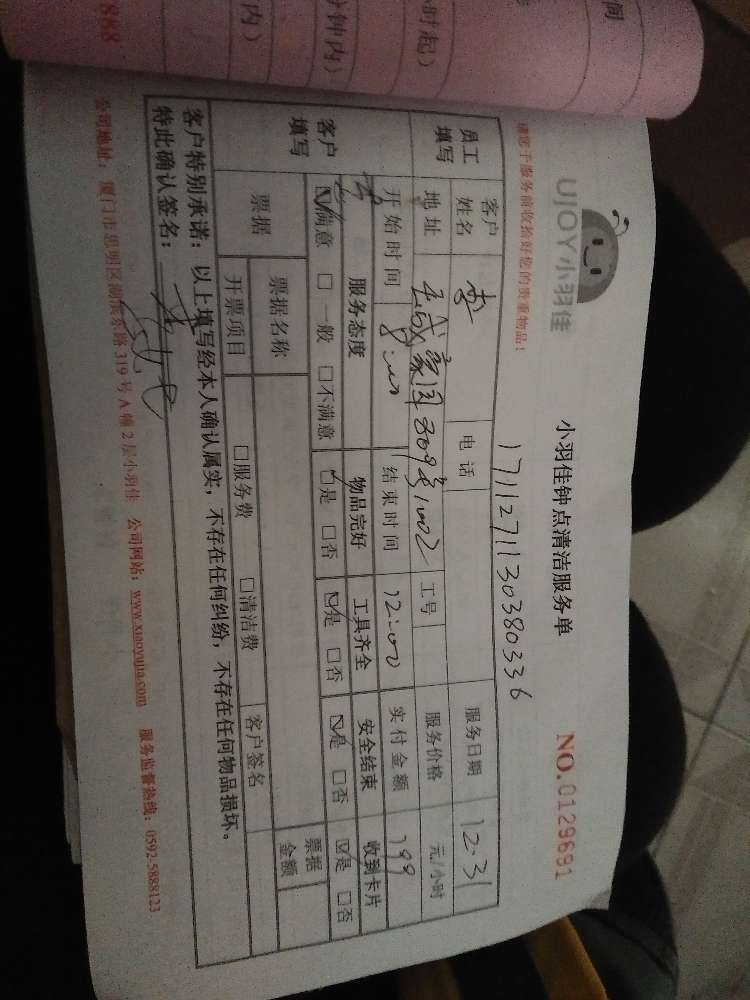 间
时起)
钟内)
内)
888
UJOY小羽佳
小羽佳钟点清洁服务单
NO.0129691
请您于服务前收拾好您的贵重物品!
1711271130380336
员工填写
客户姓名 李 电话 服务日期 12.31
地址 309号1002 工号 服务价格 元/小时
开始时间 8:00 结束时间 12:00 实付金额 199
客户填写
服务态度 物品完好 工具齐全 安全结束 收到卡片
满意 一般 不满意 是 否 是 否 是 否 是 否
票据 票据名称 票据金额
开票项目 服务费 清洁费 客户签名
客户特别承诺:以上填写经本人确认属实,不存在任何纠纷,不存在任何物品损坏。
特此确认签名:
公司地址:厦门市思明区湖滨东路319号A幢2层小羽佳 公司网站:www.xiaoyujia.com 服务监督热线:0592-5888123